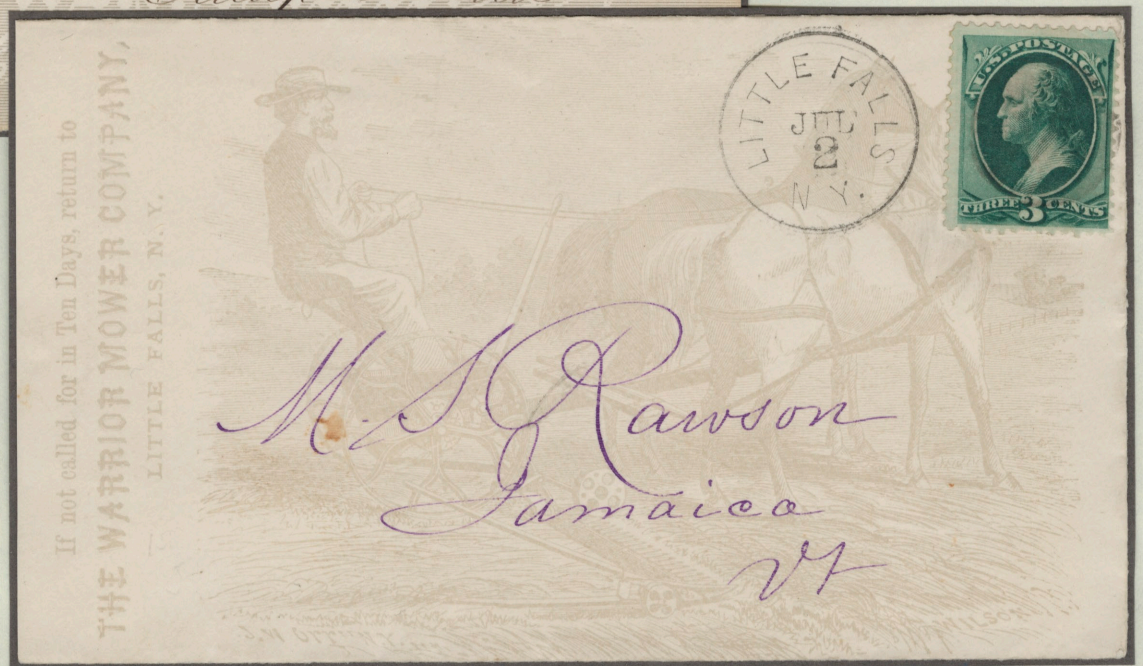 If not called for in Ten Days, return to
THE WARRIOR MOWER COMPANY,
LITTLE FALLS, N. Y.
LITTLE FALLS
JUL
2
N Y.
U.S. POSTAGE
THREE 3 CENTS
M. S. Rawson
Jamaica
Vt